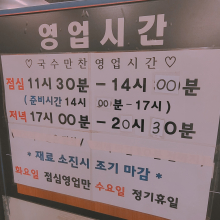 영업시간
♡국수만찬영업시간♡
점심 11시30분 - 14시00분
(준비시간 14시00분 - 17시)
저녁 17시00분 - 20시30분
* 재료 소진시 조기 마감 *
화요일 점심영업만 수요일 정기휴일